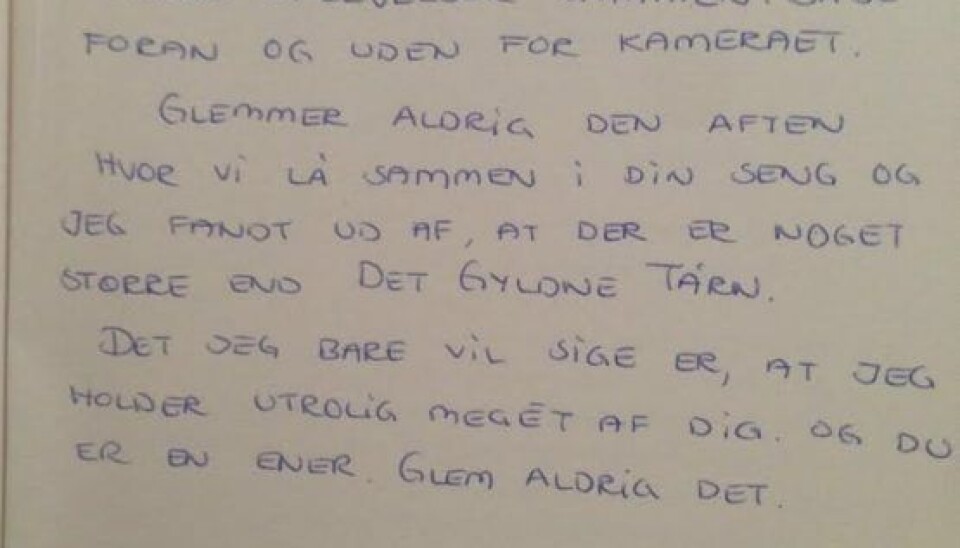 FORAN OG UDEN FOR KAMERAET.
GLEMMER ALDRIG DEN AFTEN
HVOR VI LÅ SAMMEN I DIN SENG OG
JEG FANDT UD AF, AT DER ER NOGET
STØRRE END DET GYLDNE TÅRN.
DET JEG BARE VIL SIGE ER, AT JEG
HOLDER UTROLIG MEGET AF DIG. OG DU
ER EN ENER. GLEM ALDRIG DET.